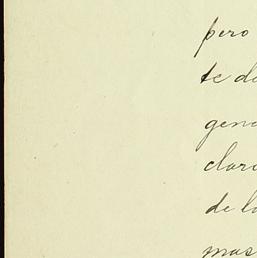 pero
te de
gene
clar
de l
mas